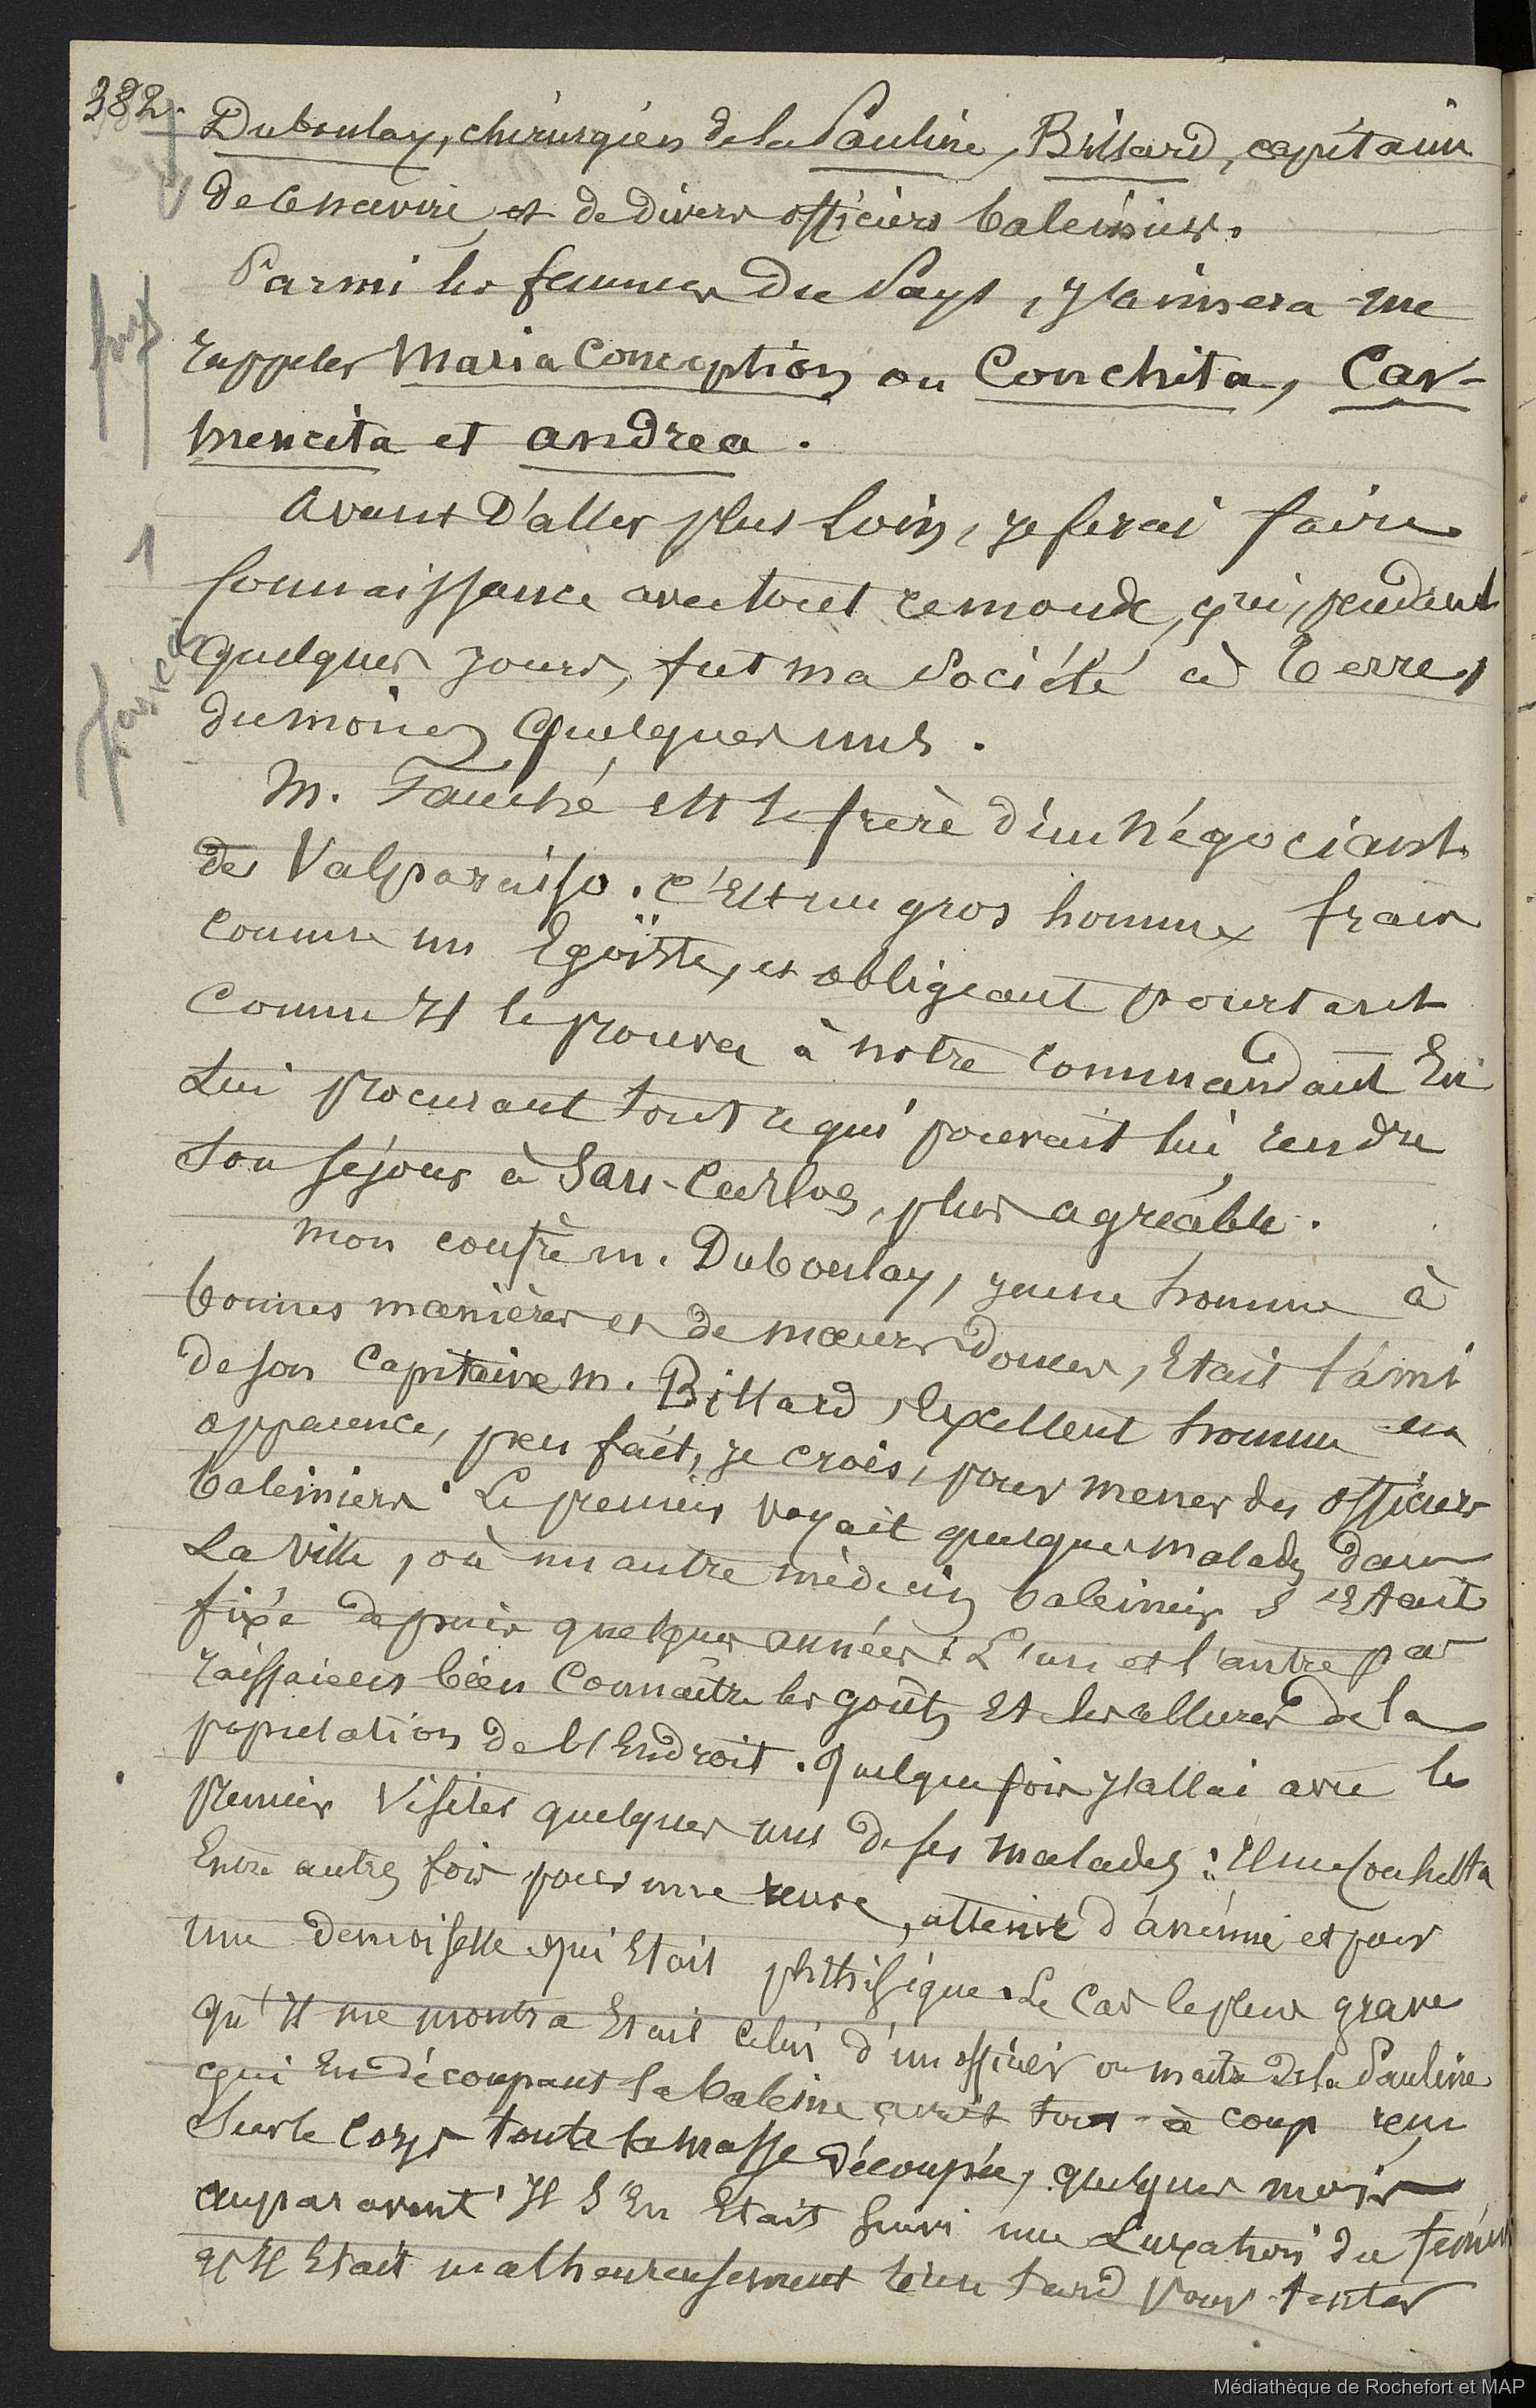 382.
Duboulay, chirurgien de la Pauline, Billard, capitaine
de ce navire et de divers officiers baleiniers.
Parmi les femmes du Pays, j'aimerai me
rappeler Maria Conception ou Conchita, Car-
mencita et andrea.
avant d'aller plus loin, je ferai faire
connaissance avec tout ce monde, qui, pendant
quelques jours, fut ma société à terre,
du moins quelques uns.
M. Fauché est le frère d'un négociant
de Valparaiso. C'est un gros homme frais
comme un Egoïste, et obligeant pourtant
comme il le prouva à notre commandant En
Lui procurant tout ce qui pouvait lui rendre
son séjour à San-Carlos, plus agréable.
mon confrère m. Duboulay, jeune homme à
bonnes manières et de mœurs douces, Etait l'ami
de son Capitaine m. Billard, Excellent homme en
apparence, peu fait, je crois, pour mener des officiers
baleiniers. Le premier voyait quelques malades dans
La ville, où un autre médecin baleinier s'Etait
fixé depuis quelques années. L'un et l'autre pa
raissaient bien Connaître les goûts Et les allures de la
population de l'Endroit. Quelque fois j'allai avec le
premier Visiter quelques uns de ses malades: Il me consulta
Entre autres fois pour une veuve, atteinte d'anémie et pour
une demoiselle qui Etait phthisique. Le Cas le plus grave
qu'il me montra Etait Celui d'un officier ou maître de la Pauline
qui En découpant la baleine avait tout-à coup reçu
sur le Corps toute la masse découpée, quelques mois
auparavant. Il s'En Etait suivi une Luxation du fémur
et Il Etait malheureusement bien tard pour tenter
1
Médiathèque de Rochefort et MAP